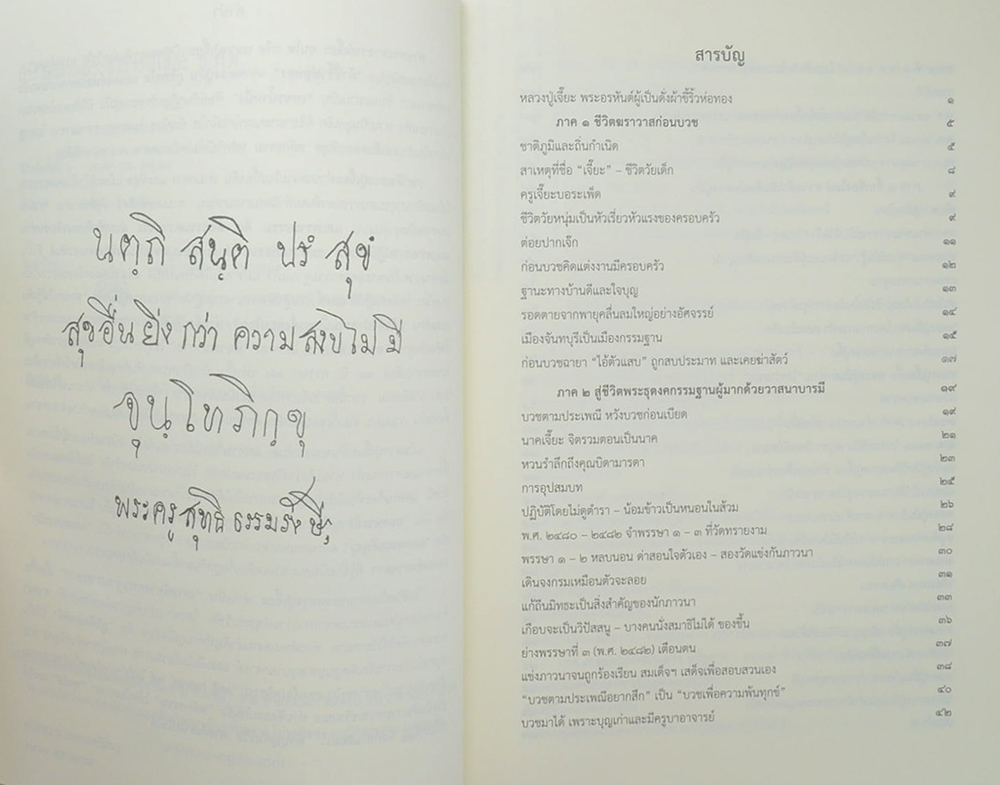 นตฺถิ สนฺติ ปรํ สุขํ
สุขอื่นยิ่งกว่า ความสงบไม่มี
จุนฺโทภิกฺขุ
พระครูสุทธิธรรมรังษี
สารบัญ
หลวงปู่เจี๊ยะ พระอรหันต์ผู้เป็นดั่งผ้าขี้ริ้วห่อทอง ๑
ภาค ๑ ชีวิตฆราวาสก่อนบวช ๕
ชาติภูมิและถิ่นกำเนิด ๕
สาเหตุที่ชื่อ “เจี๊ยะ” – ชีวิตวัยเด็ก ๘
ครูเจี๊ยะบอระเพ็ด ๙
ชีวิตวัยหนุ่มเป็นหัวเรี่ยวหัวแรงของครอบครัว ๙
ต่อยปากเจ๊ก ๑๑
ก่อนบวชคิดแต่งงานมีครอบครัว ๑๒
ฐานะทางบ้านดีและใจบุญ ๑๓
รอดตายจากพายุคลื่นลมใหญ่อย่างอัศจรรย์ ๑๔
เมืองจันทบุรีเป็นเมืองกรรมฐาน ๑๕
ก่อนบวชฉายา “ไอ้ตัวแสบ” ถูกสบประมาท และเคยฆ่าสัตว์ ๑๗
ภาค ๒ สู่ชีวิตพระธุดงคกรรมฐานผู้มากด้วยวาสนาบารมี ๑๙
บวชตามประเพณี หวังบวชก่อนเบียด ๑๙
นาคเจี๊ยะ จิตรวมตอนเป็นนาค ๒๑
หวนรำลึกถึงคุณบิดามารดา ๒๓
การอุปสมบท ๒๕
ปฏิบัติโดยไม่ดูตำรา – น้อมข้าวเป็นหนอนในส้วม ๒๖
พ.ศ. ๒๔๘๐ – ๒๔๘๒ จำพรรษา ๑ – ๓ ที่วัดทรายงาม ๒๘
พรรษา ๑ – ๒ หลบนอน ด่าสอนใจตัวเอง – สองวัดแข่งกันภาวนา ๓๐
เดินจงกรมเหมือนตัวจะลอย ๓๑
แก้ถีนมิทธะเป็นสิ่งสำคัญของนักภาวนา ๓๓
เกือบจะเป็นวิปัสสนู – บางคนนั่งสมาธิไม่ได้ ของขึ้น ๓๖
ย่างพรรษาที่ ๓ (พ.ศ. ๒๔๘๒) เตือนตน ๓๗
แข่งภาวนาจนถูกร้องเรียน สมเด็จฯ เสด็จเพื่อสอบสวนเอง ๓๘
“บวชตามประเพณีอยากสึก” เป็น “บวชเพื่อความพ้นทุกข์” ๔๐
บวชมาได้ เพราะบุญเก่าและมีครูบาอาจารย์ ๔๒